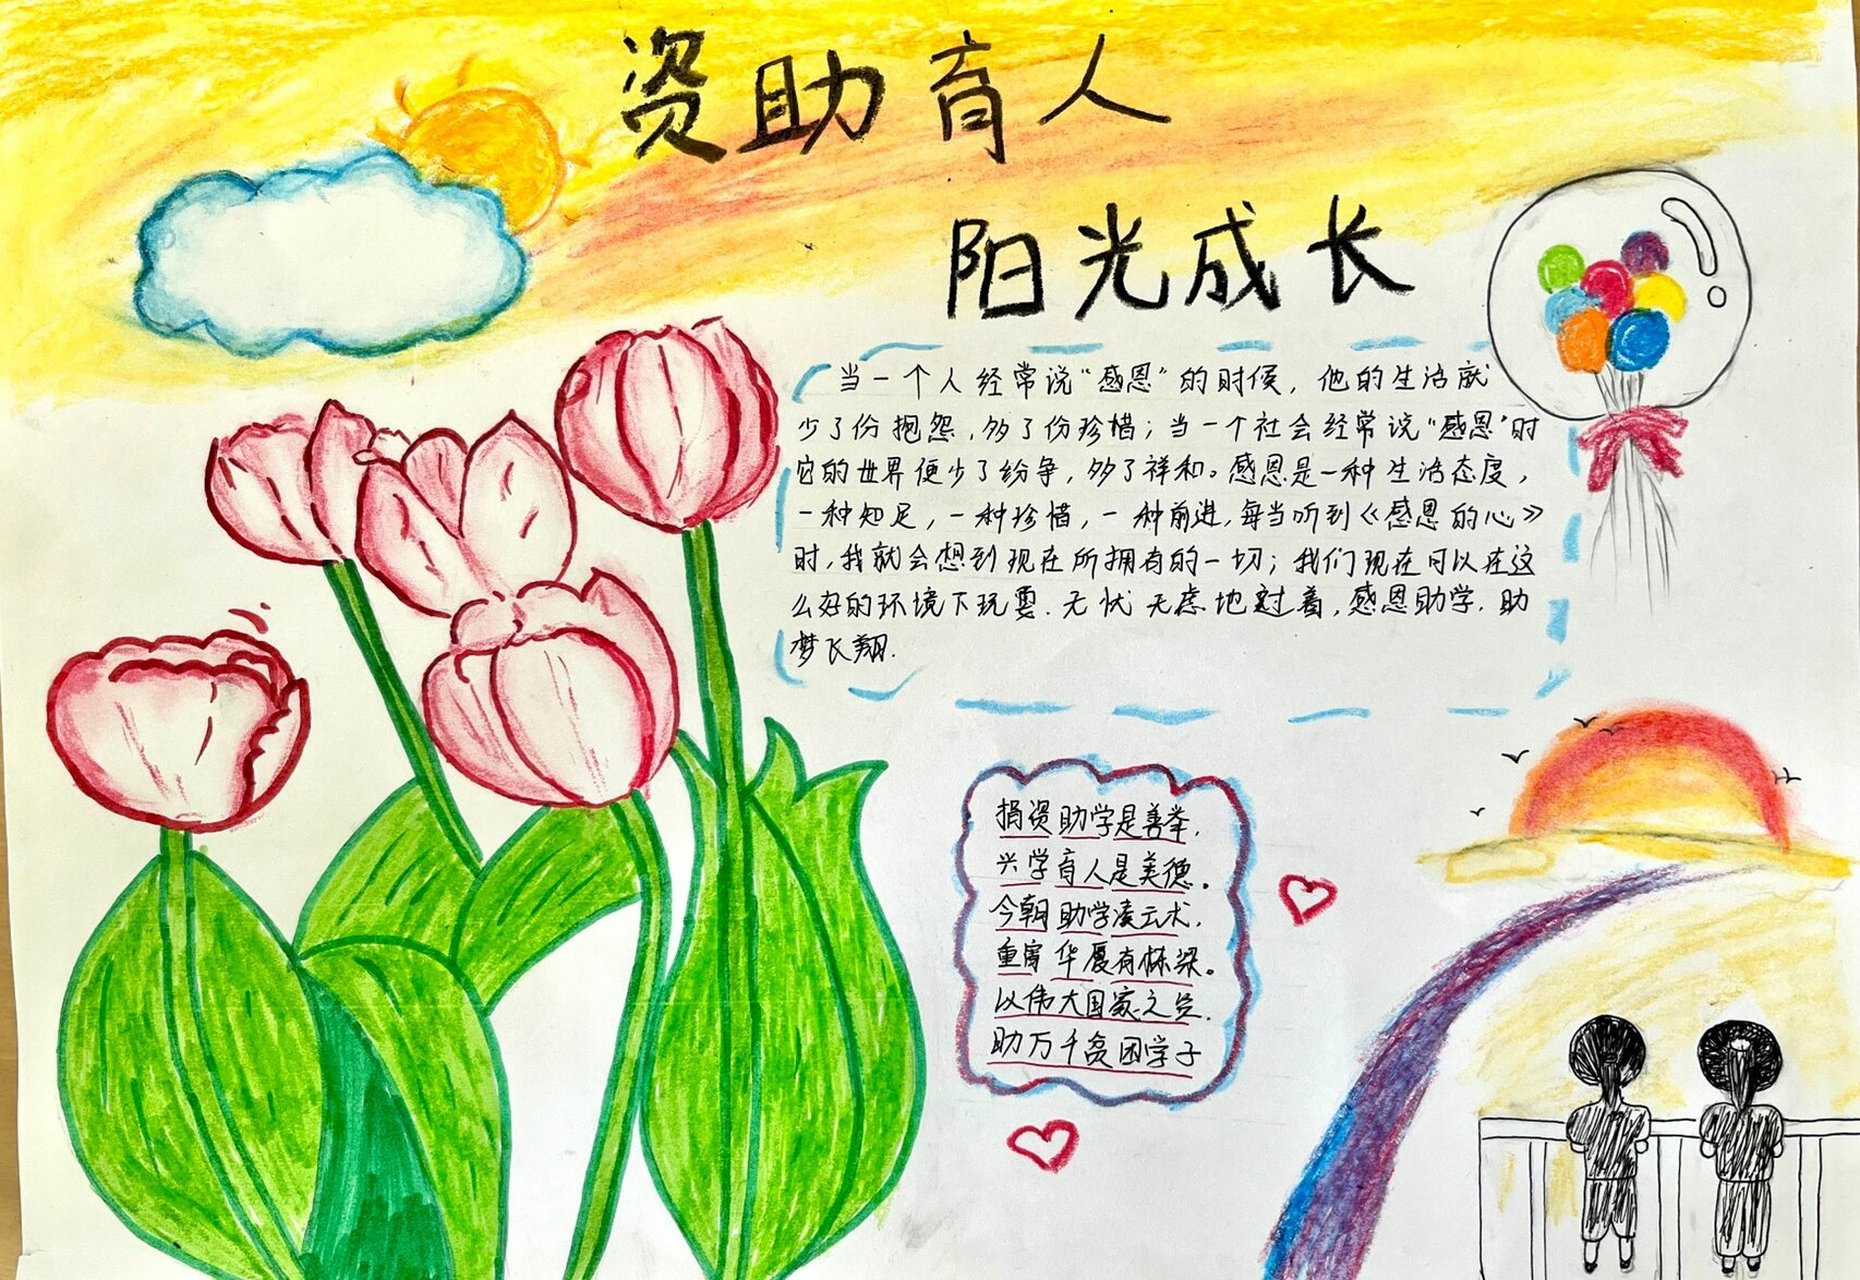 资助育人
阳光成长
当一个人经常说“感恩”的时候，他的生活就
少了份抱怨，多了份珍惜；当一个社会经常说“感恩”时
它的世界便少了纷争，多了祥和。感恩是一种生活态度，
一种知足，一种珍惜，一种前进，每当听到《感恩的心》
时，我就会想到现在所拥有的一切；我们现在可以在这
么好的环境下玩耍．无忧无虑地过着，感恩助学．助
梦长翔．
捐资助学是善举，
兴学育人是美德。
今朝助学凌云木，
重席华厦有栋梁。
以伟大国家之名．
助万千贫困学子